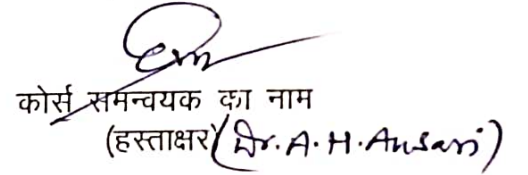 कोर्स समन्वयक का नाम
(हस्ताक्षर) (Dr. A. H. Ansari)